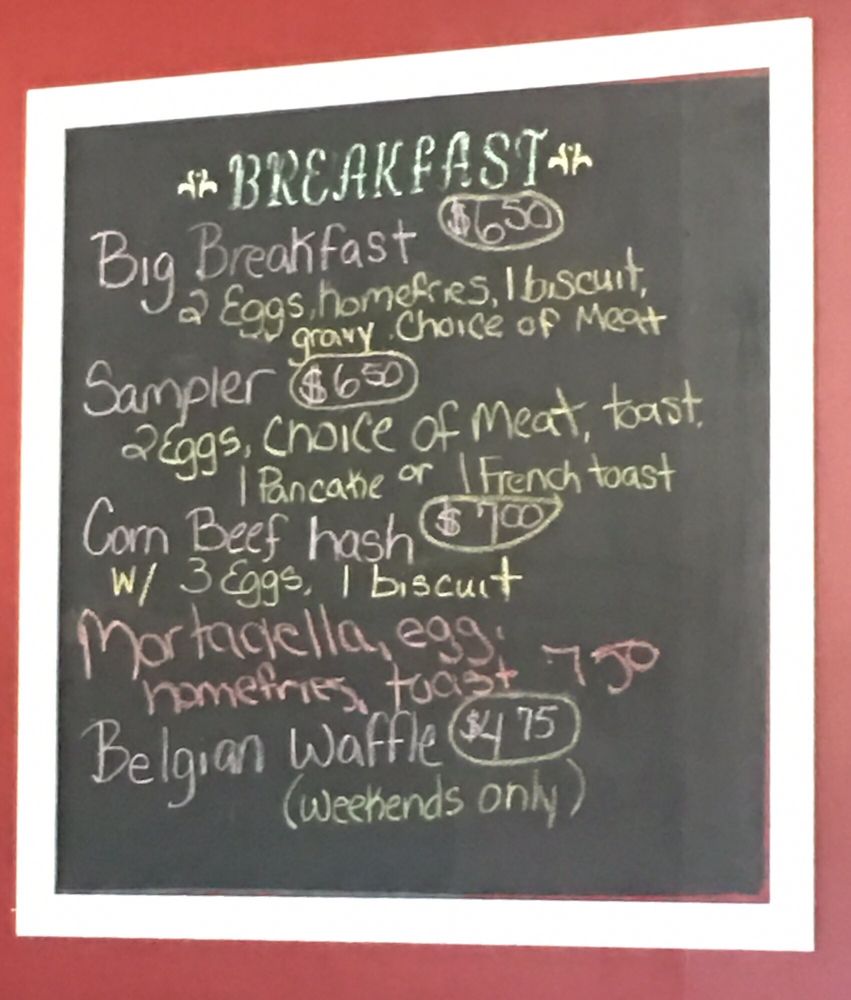 BREAKFAST
Big Breakfast $6.50
2 Eggs, homefries, 1 biscuit,
gravy. Choice of Meat
Sampler $6.50
2 Eggs, Choice of Meat, toast,
1 Pancake or 1 French toast
Corn Beef hash $7.00
W/ 3 Eggs, 1 biscuit
Mortadella, egg,
homefries, toast 7 50
Belgian Waffle $4 75
(weekends only)